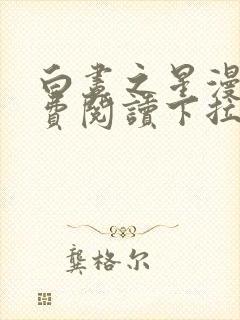 白晝之星漫
費閱讀下拉
龔格尔